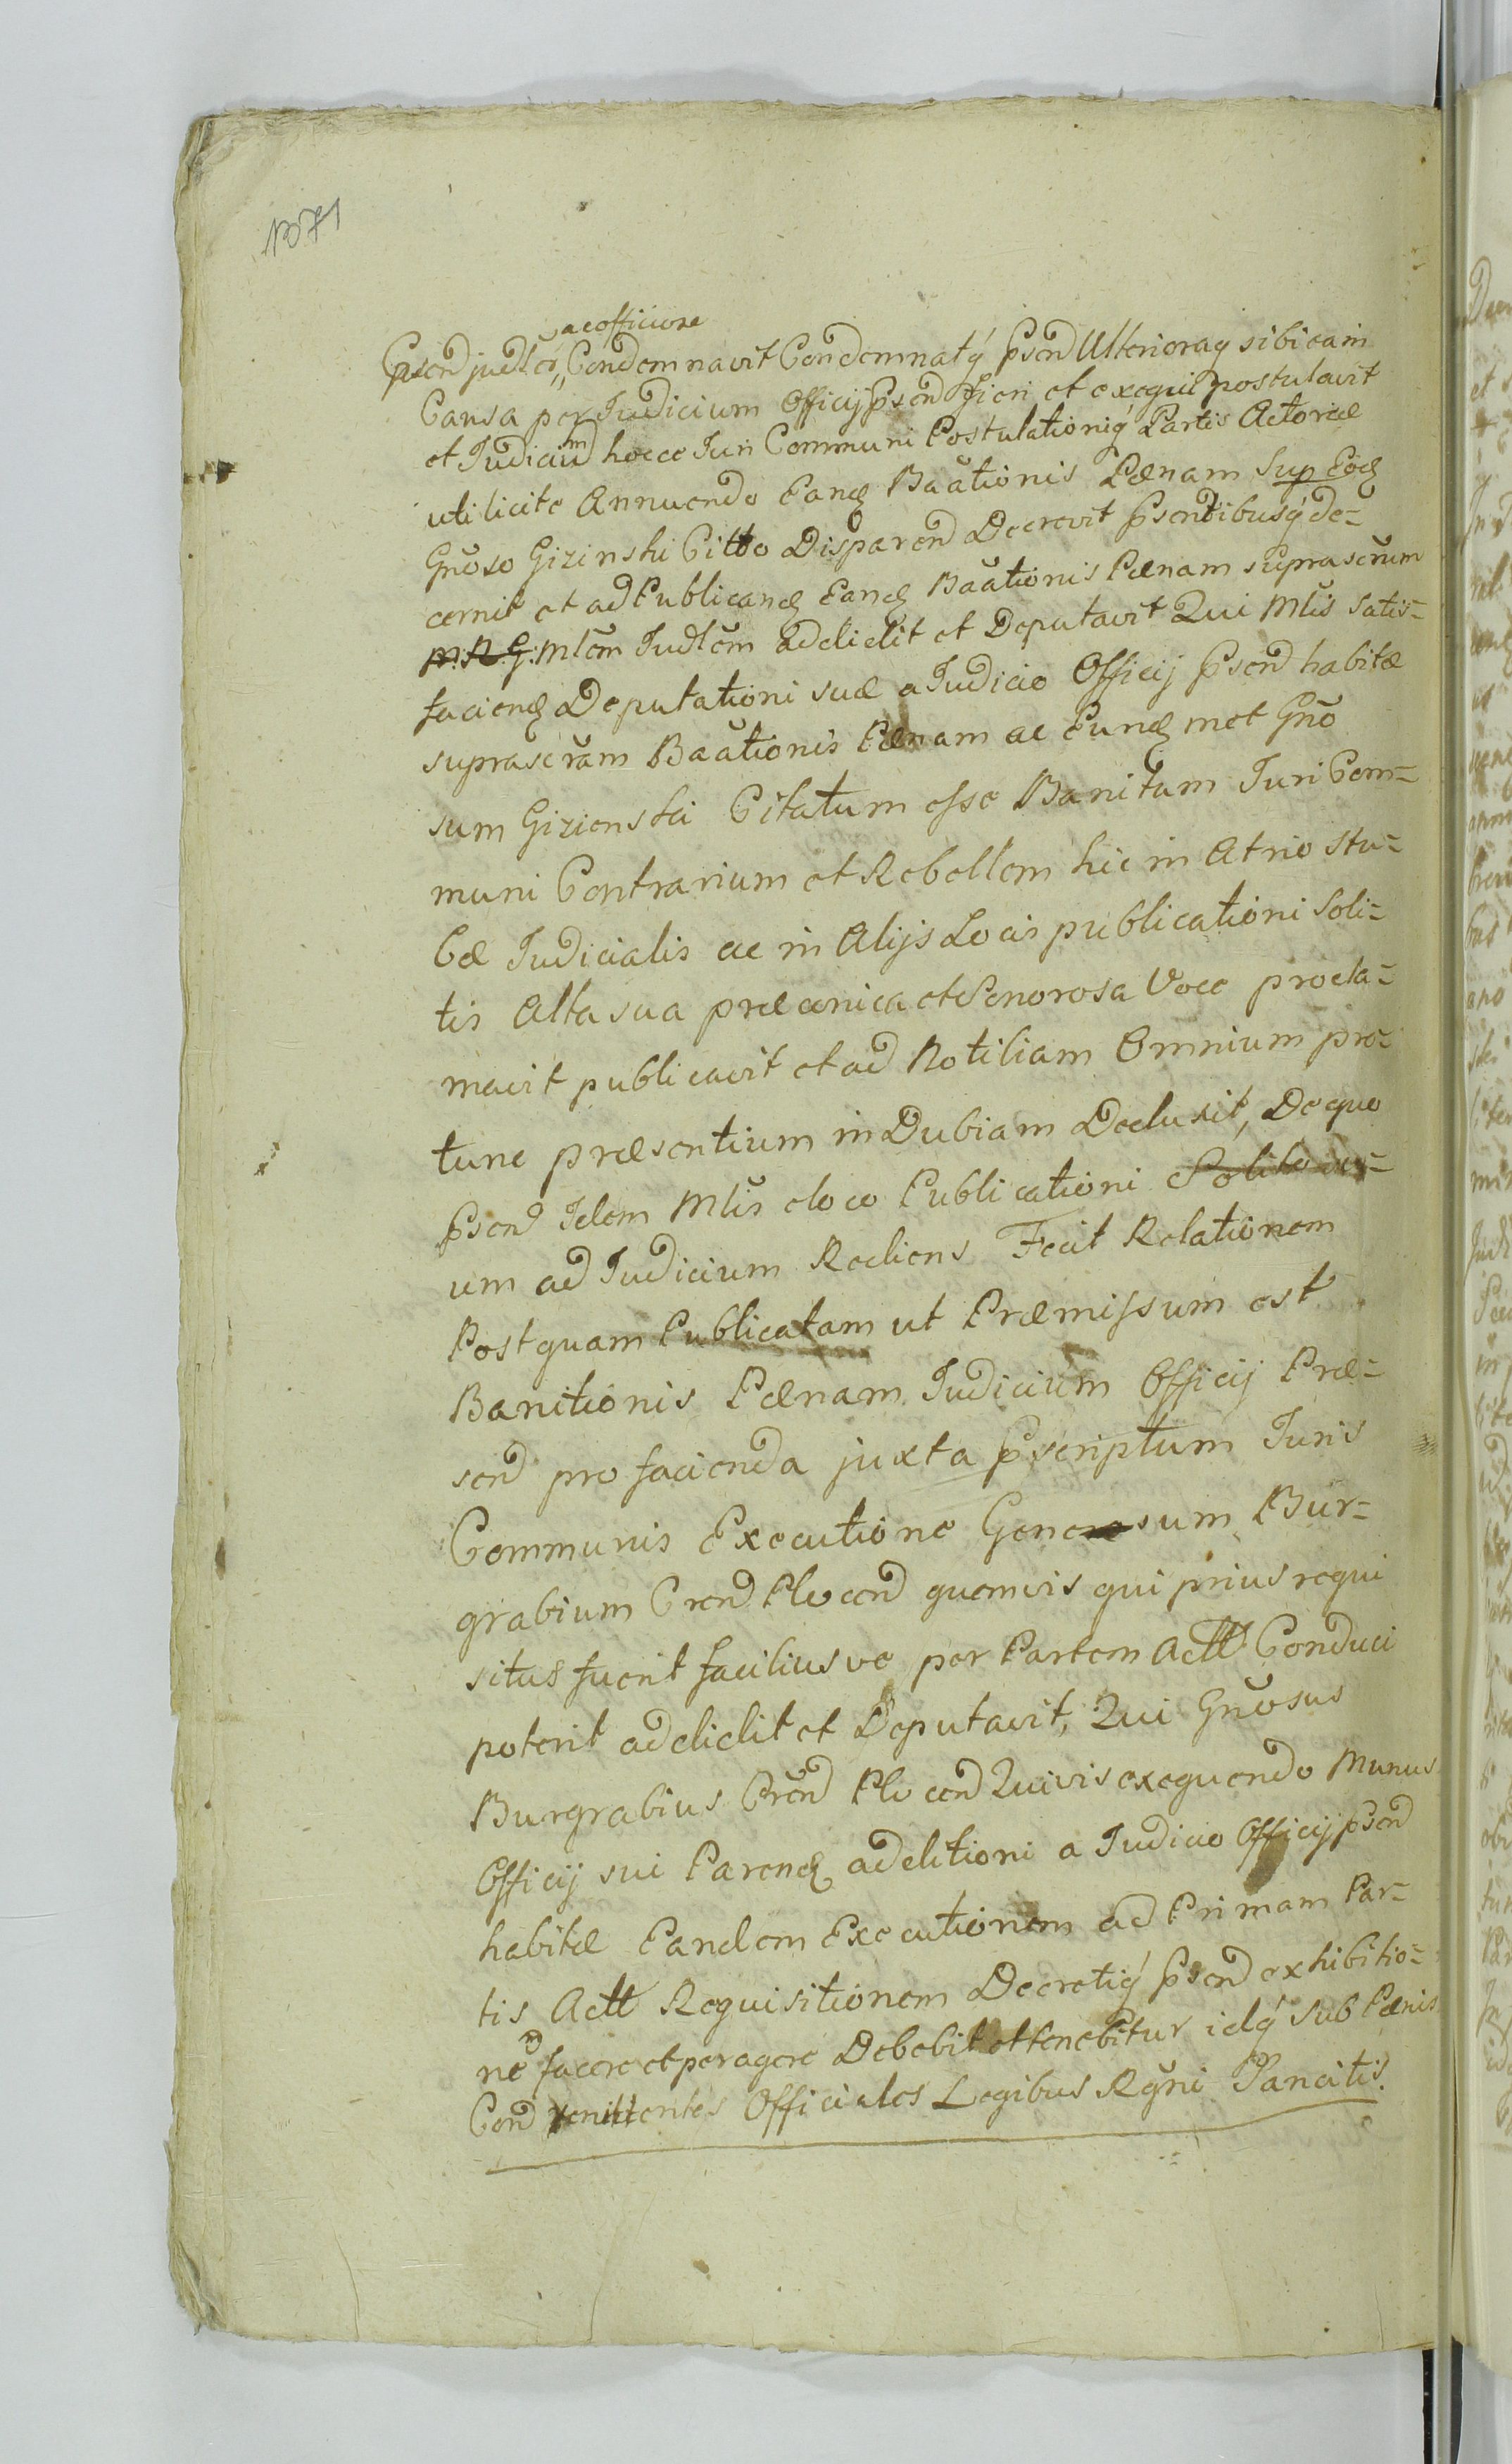 1371
ac officiose
Psend judlr, Condemnavit Condemnatq Psend Ulterioraq sibi ea in
Causa per Judicium Officij Psend fieri et exequi postulavit
et Judicium hocce Juri Communi Postulationiq Partis Actoreæ
uti licite Annuendo Eand Baationis Pænam Sup Eod
Gnoso Gizinski Citto Disparend Decrevit Psentibusq de-
cernit et ad Publicand Eand Baationis Pænam suprascrum
Mlem Judlem addidit et Deputavit Qui Mlis satis-
faciend Deputationi suæ a Judicio Officij Psend habitæ
suprascram Baationis Pænam ac Eund met Gno
sum Gizienski Citatum esse Banitum Juri Com-
muni Contrarium et Rebellem hic in Atrio stu-
bæ Judicialis ac in Alijs Locis publicationi Soli-
tis Alta sua præconica et Sonorosa Voce procla-
mavit publicavit et ad Notitiam Omnium pro-
tunc præsentium in Dubiam Deduxit, De quo
Psend Idem Mlis eloco Publicationi Solito su-
um ad Judicium Rediens Fecit Relationem
Post quam Publicatam ut Præmissum est
Banitionis Pænam Judicium Officij Præ-
send pro facienda juxta Pscriptum Juris
Communis Executione Generosum Bur-
grabium Crend Plocend quemvis qui prius requi
situs fuerit faciliusve per Partem Actt Conduci
poterit addidit et Deputavit, Qui Gnosus
Burgrabius Crend Plocend Quivis exequendo Munus
Officij sui Parend additioni a Judicio Officij psend
habitæ Eandem Executionem ad Primam Par-
tis Actt Requisitionem Decretiq Psend exhibitio-
ne facere et peragere Debebit et tenebitur idq sub Pænis
Cond renittentes Officiales Legibus Regni Sancitis.